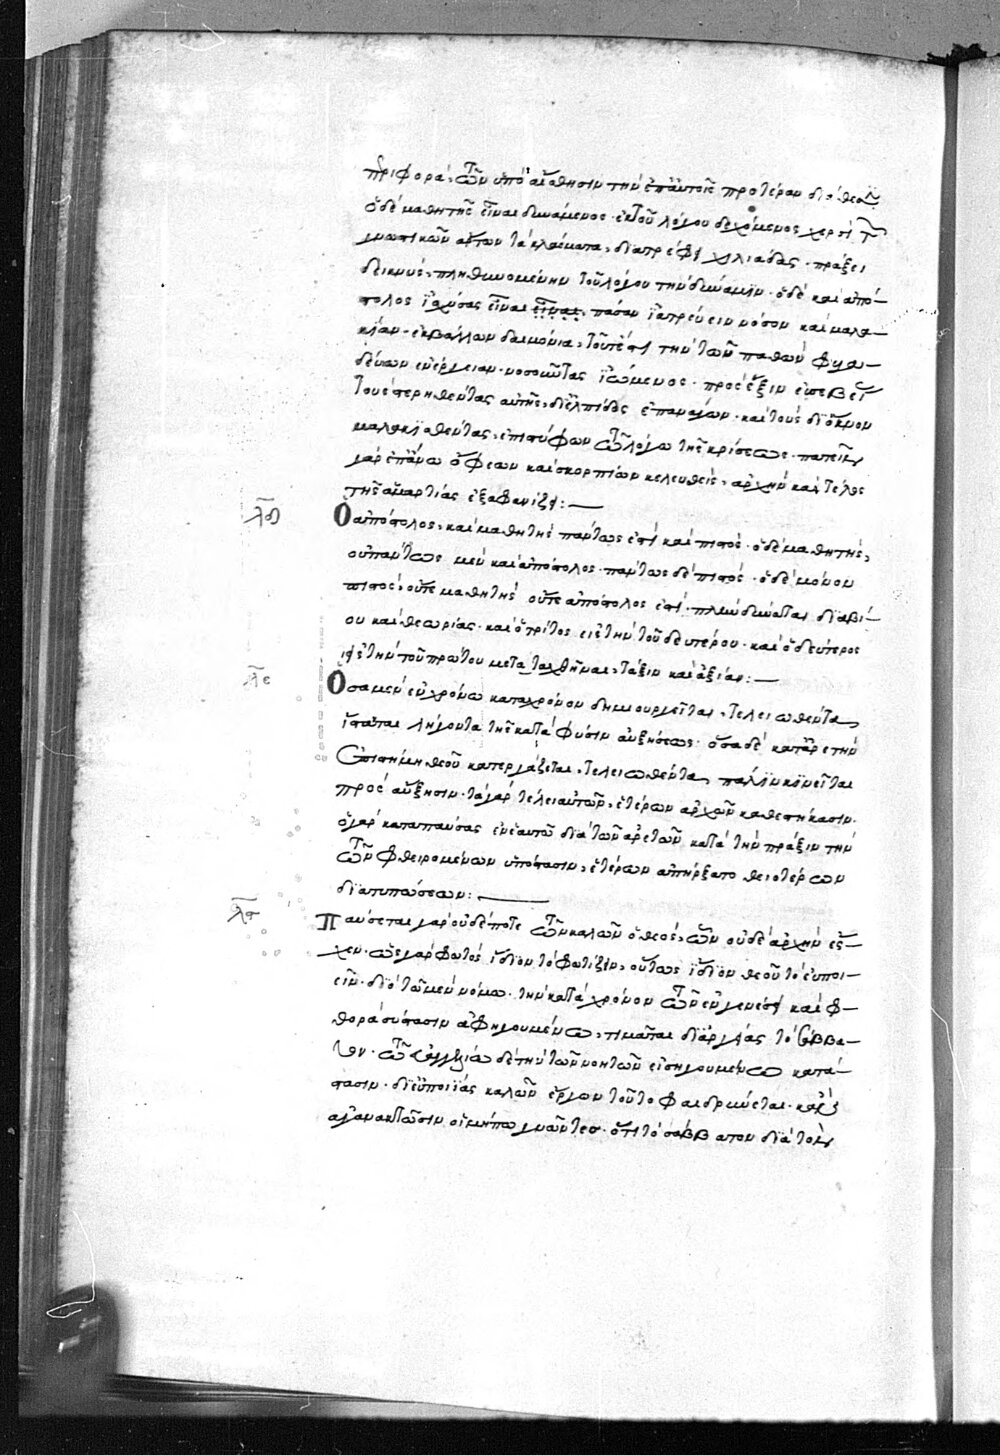 περιφορὰν τῶν ὑπ' αἴσθησιν τὴν ἐπ' αὐτοῖς προτέραν διάθεσιν·
ὁ δὲ μαθητὴς εἶναι δυνάμενος· ἐκ τοῦ λόγου δεχόμενος χερσὶ τῶν
γνωστικῶν ἄρτων τὰ κλάσματα, διατρέφει χιλιάδας· πράξει
δεικνὺς, πληθυνομένην τοῦ λόγου τὴν δύναμιν· ὁ δὲ καὶ ἀπό-
στολος ἰσχύσας εἶναι εἶναι, πᾶσαν ἰατρεύειν νόσον καὶ μαλα-
κίαν· ἐκβάλλων δαιμόνια, τουτέστι τὴν τῶν παθῶν φυγα-
δεύων ἐνέργειαν· νοσοῦντας ἰώμενος· πρὸς ἕξιν εὐσεβεί
τοὺς στερηθέντας αὐτῆς, δι' ἐλπίδος ἐπανάγων· καὶ τοὺς δι' ὄκνον
μαλακισθέντας, ἐπιστύφων τῶ λόγω τῆς κρίσεως· πατεῖν
γὰρ ἐπάνω ὄφεων καὶ σκορπίων κελευθεὶς, ἀρχὴν καὶ τέλος
τῆς ἁμαρτίας ἐξαφανίζει:—
λδ Ὁ ἀπόστολος, καὶ μαθητὴς πάντως ἐστὶ καὶ πιστός· ὁ δὲ μαθητὴς,
οὐ πάντως μὲν καὶ ἀπόστολος· πάντως δὲ πιστός· ὁ δὲ μόνον
πιστὸς, οὔτε μαθητὴς οὔτε ἀπόστολος ἐστί· πλὴν δύναται διὰ βί-
ου καὶ θεωρίας· καὶ ὁ τρίτος εἰς τὴν τοῦ δευτέρου· καὶ ὁ δεύτερος
εἰς τὴν τοῦ πρώτου μεταταχθῆναι, τάξιν καὶ ἀξίαν:—
λε Ὅσα μὲν ἐν χρόνω κατὰ χρόνον δημιουργεῖται, τελειωθέντα,
ἵσταται λήγοντα τῆς κατὰ φύσιν αὐξήσεως· ὅσα δὲ κατ' ἀρετὴν
ἐπιστήμη θεοῦ κατεργάζεται, τελειωθέντα, πάλιν κινεῖται
πρὸς αὔξησιν· τὰ γὰρ τέλει αὐτῶν, ἑτέρων ἀρχῶν καθεστήκασιν·
ὁ γὰρ καταπαύσας ἐν ἑαυτοῦ διὰ τῶν ἀρετῶν κατὰ τὴν πρᾶξιν τὴν
τῶν φθειρομένων ὑπόστασιν, ἑτέρων ἀπήρξατο θειοτέρων
διατυπώσεων:—
λς Παύσεται γὰρ οὐδέποτε τῶν καλῶν ὁ θεός, ὧν οὐδὲ ἀρχὴν ἔς-
χεν· ὡς γὰρ φωτὸς ἴδιον τὸ φωτίζειν, οὕτως ἴδιον θεοῦ τὸ εὖ ποι-
εῖν· διὸ τῶ μὲν νόμω· τὴν κατὰ χρόνον τῶν ἐν γενέσει καὶ φ-
θορᾶ σύστασιν ἀφηγουμένω, τιμᾶται δι' ἀργίας τὸ σάββα-
τον· τῶ εὐαγγελίω δὲ τὴν τῶν νοητῶν εἰσηγουμένω κατά-
στασιν· δι' εὐποιΐας καλῶν ἔργων τοῦτο φαιδρύνεται· κἂν
ἀγανακτῶσιν οἱ μήπω γνῶντες· ὅτι τὸ σάββατον διὰ τὸν